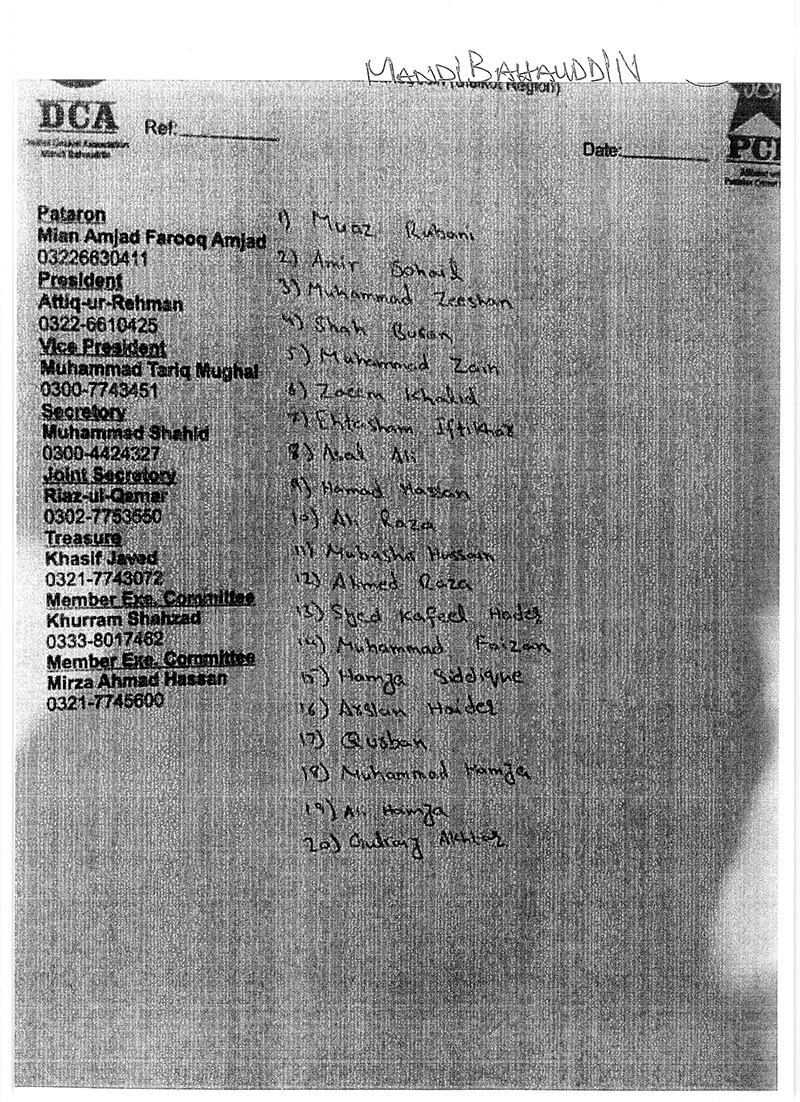 MANDI BAHAUDDIN
(Sialkot Region)
DCA
District Cricket Association
Mandi Bahauddin
Ref:
Date:
PC
Pataron
Mian Amjad Farooq Amjad
03226630411
President
Attiq-ur-Rehman
0322-6610425
Vice President
Muhammad Tariq Mughal
0300-7743451
Secretory
Muhammad Shahid
0300-4424327
Joint Secretory
Riaz-ul-Qamar
0302-7753550
Treasure
Khasif Javed
0321-7743072
Member Exe. Committee
Khurram Shahzad
0333-8017462
Member Exe. Committee
Mirza Ahmad Hassan
0321-7745600
1) Muaz Rubani
2) Amir Sohail
3) Muhammad Zeeshan
4) Shah
5) Muhammad Zain
6) Zaeem Khalid
7) Ehtasham Iftikhar
8) Asal Ali
9) Hamad Hassan
10) Ali Raza
11) Mubashir Hussain
12) Ahmed Raza
13) Syed Kafeel Hader
14) Muhammad Faizan
15) Hamza Siddique
16) Arslan Haider
17) Qurban
18) Muhammad Hamza
19) Ali Hamza
20) Akhtar